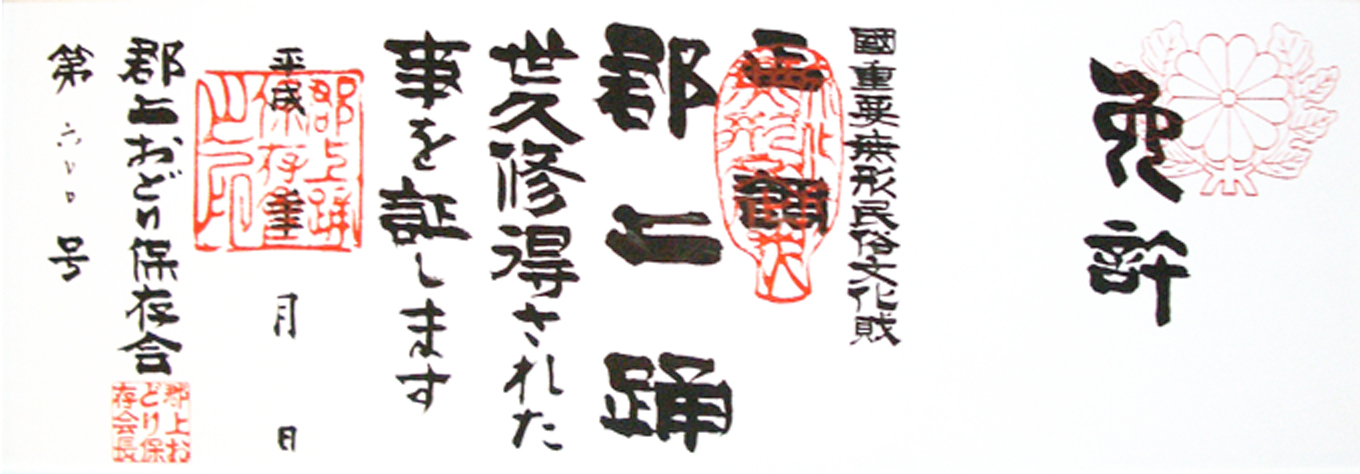 免許
國重要無形民俗文化財
郡上踊
世久修得された
事を証します
平成 年 月 日
郡上踊
保存会
之印
郡上おどり保存会
郡上お
どり保
存会長
第 号